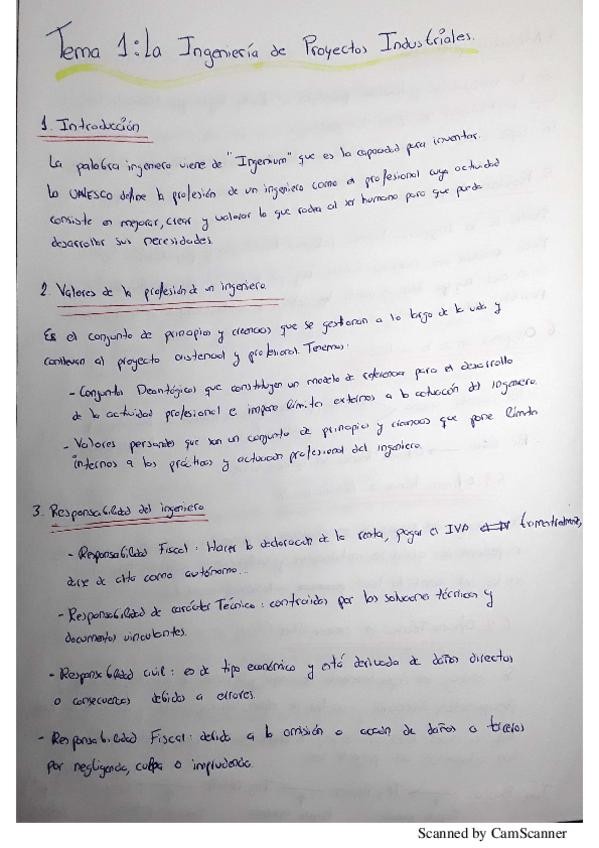 Tema 1: La Ingeniería de Proyectos Industriales.
1. Introducción
La palabra ingeniero viene de "Ingenium" que es la capacidad para inventar.
La UNESCO define la profesión de un ingeniero como el profesional cuya actividad
consiste en mejorar, crear y valorar lo que rodea al ser humano para que pueda
desarrollar sus necesidades.
2. Valores de la profesión de un ingeniero.
Es el conjunto de principios y creencias que se gestionan a lo largo de la vida y
conllevan al proyecto existencial y profesional. Tenemos:
- Conjuntos Deontológicos que constituyen un modelo de referencia para el desarrollo
de la actividad profesional e impone límites externos a la actuación del ingeniero.
- Valores personales que son un conjunto de principios y creencias que pone límites
internos a las prácticas y actuación profesional del ingeniero.
3. Responsabilidad del ingeniero
- Responsabilidad Fiscal: Hacer la declaración de la renta, pagar el IVA trimestralmente,
darse de alta como autónomo...
- Responsabilidad de carácter Técnico: contraídas por las soluciones técnicas y
documentos vinculantes.
- Responsabilidad civil: es de tipo económico y está derivada de daños directos
o consecuencias debidos a errores.
- Responsabilidad Fiscal: debido a la omisión o acción de daños a terceros
por negligencia, culpa o imprudencia.
Scanned by CamScanner